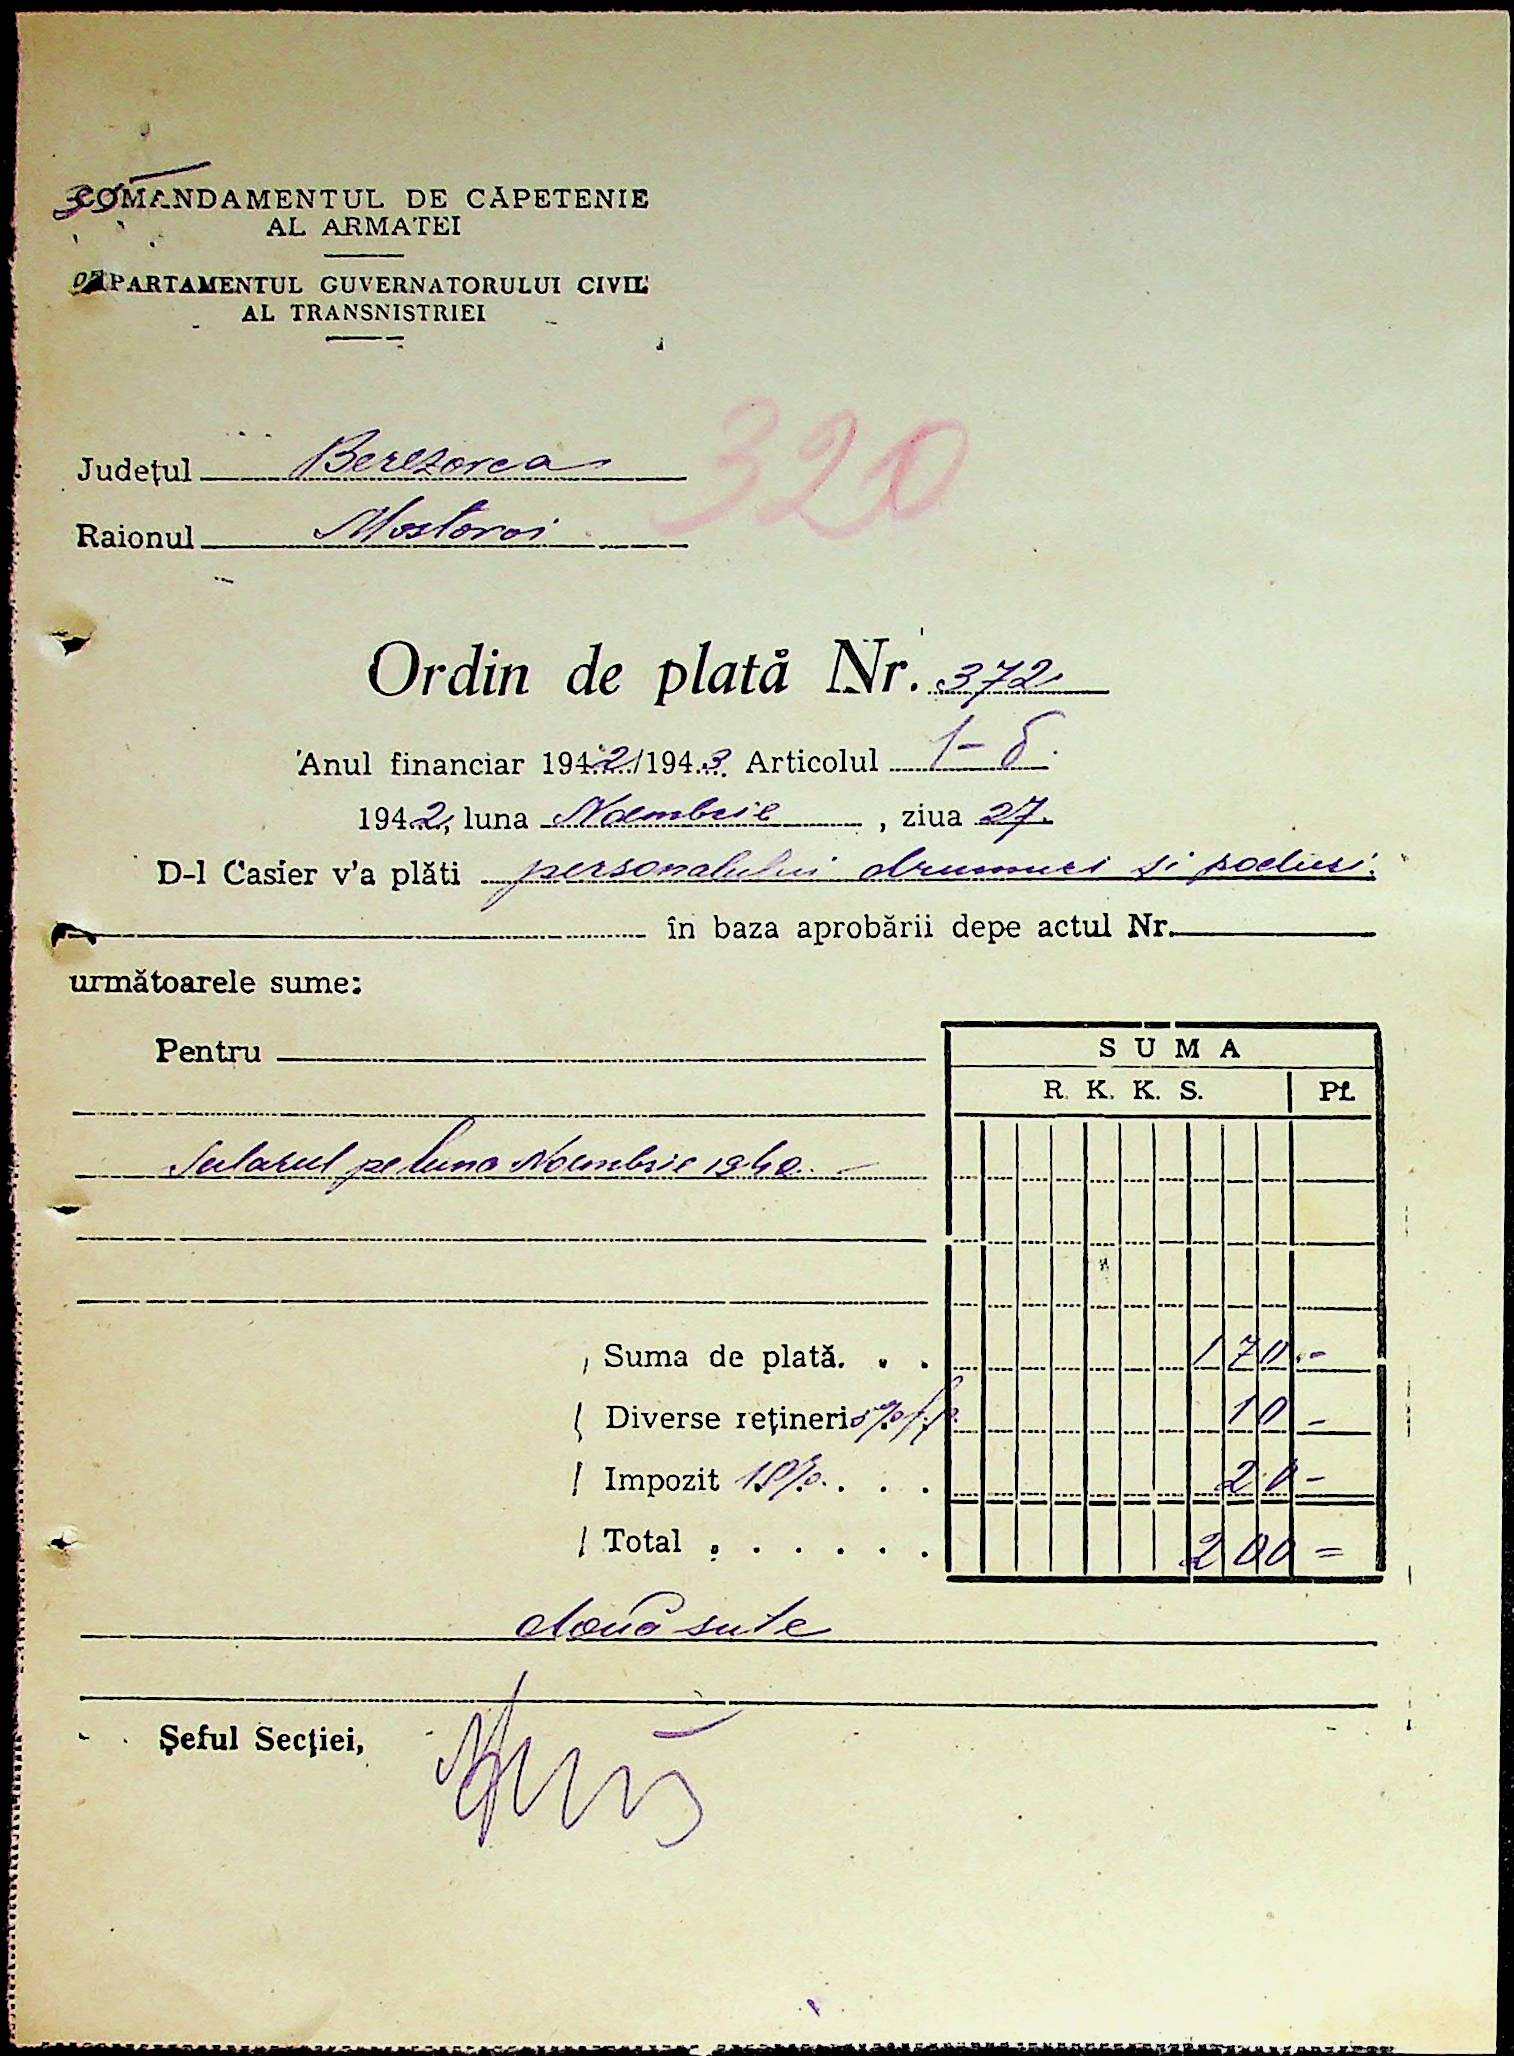 COMANDAMENTUL DE CĂPETENIE
AL ARMATEI
DEPARTAMENTUL GUVERNATORULUI CIVIL
AL TRANSNISTRIEI
320
Județul Berezovca
Raionul Mostovoi
Ordin de plată Nr. 372
Anul financiar 1942/1943 Articolul 1-б.
1942, luna Noembrie, ziua 27.
D-l Casier v'a plăti personalului drumuri si poduri.
în baza aprobării depe actul Nr.
următoarele sume:
Pentru
SUMA
R. K. K. S. Pf.
Salarul pe luna Noembrie 1942. -
Suma de plată. . . 170.-
Diverse rețineri 5% 10 -
Impozit 10% . . . 20 -
Total . . . . . . . 200 =
două sute
Șeful Secției,